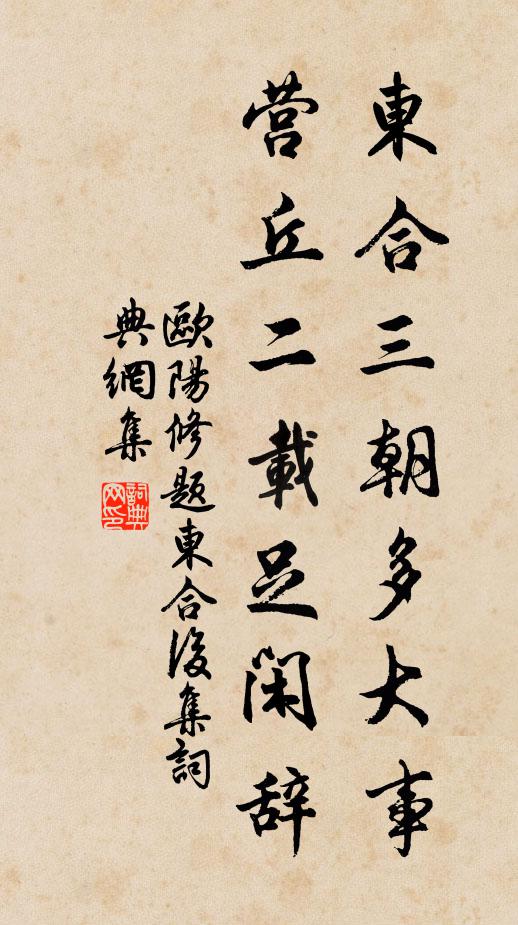 東合三朝多大事
营丘二載足闲辞
歐陽修題東合後集詞
典網集
詞典网印